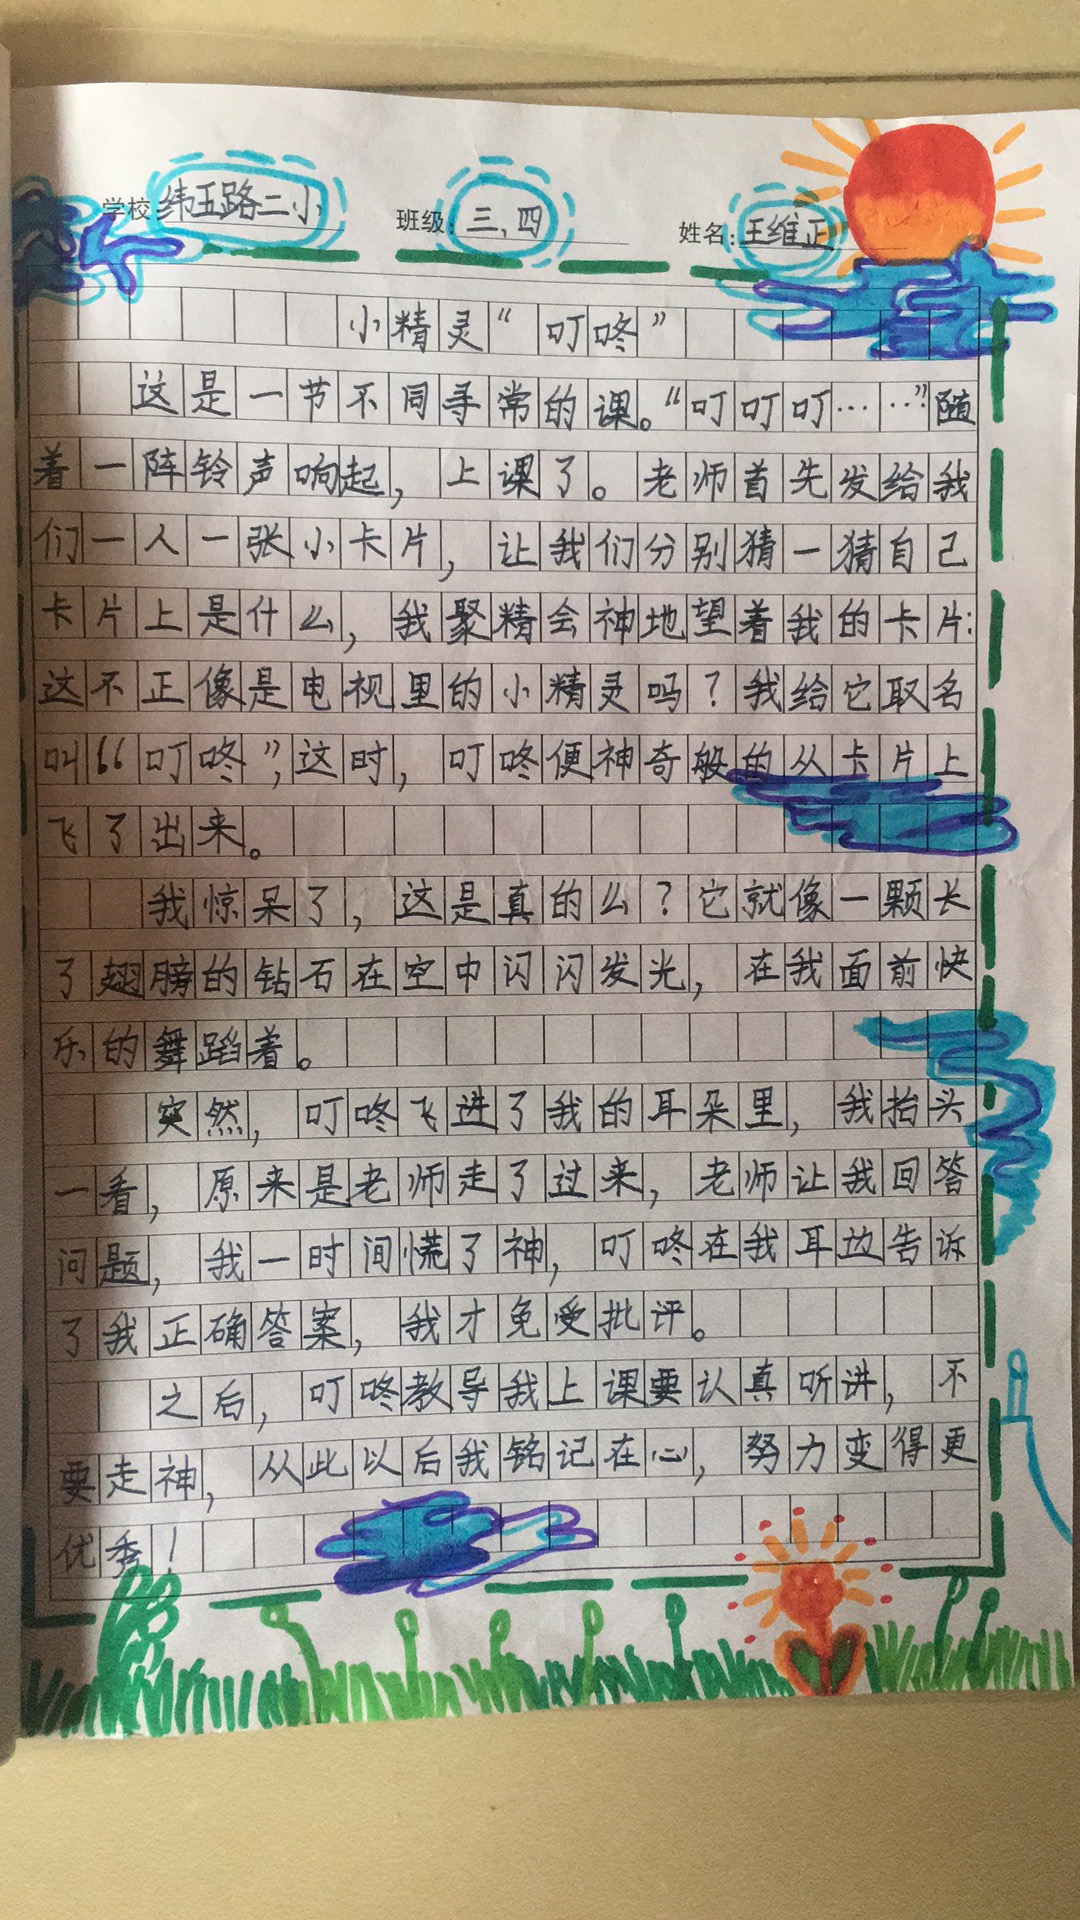 学校 纬五路二小 班级: 三,四 姓名: 王维正
小精灵“叮咚”
这是一节不同寻常的课。“叮叮叮……”随
着一阵铃声响起,上课了。老师首先发给我
们一人一张小卡片,让我们分别猜一猜自己
卡片上是什么,我聚精会神地望着我的卡片:
这不正像是电视里的小精灵吗?我给它取名
叫“叮咚”,这时,叮咚便神奇般的从卡片上
飞了出来。
我惊呆了,这是真的么?它就像一颗长
了翅膀的钻石在空中闪闪发光,在我面前快
乐的舞蹈着。
突然,叮咚飞进了我的耳朵里,我抬头
一看,原来是老师走了过来,老师让我回答
问题,我一时间慌了神,叮咚在我耳边告诉
了我正确答案,我才免受批评。
之后,叮咚教导我上课要认真听讲,不
要走神,从此以后我铭记在心,努力变得更
优秀!